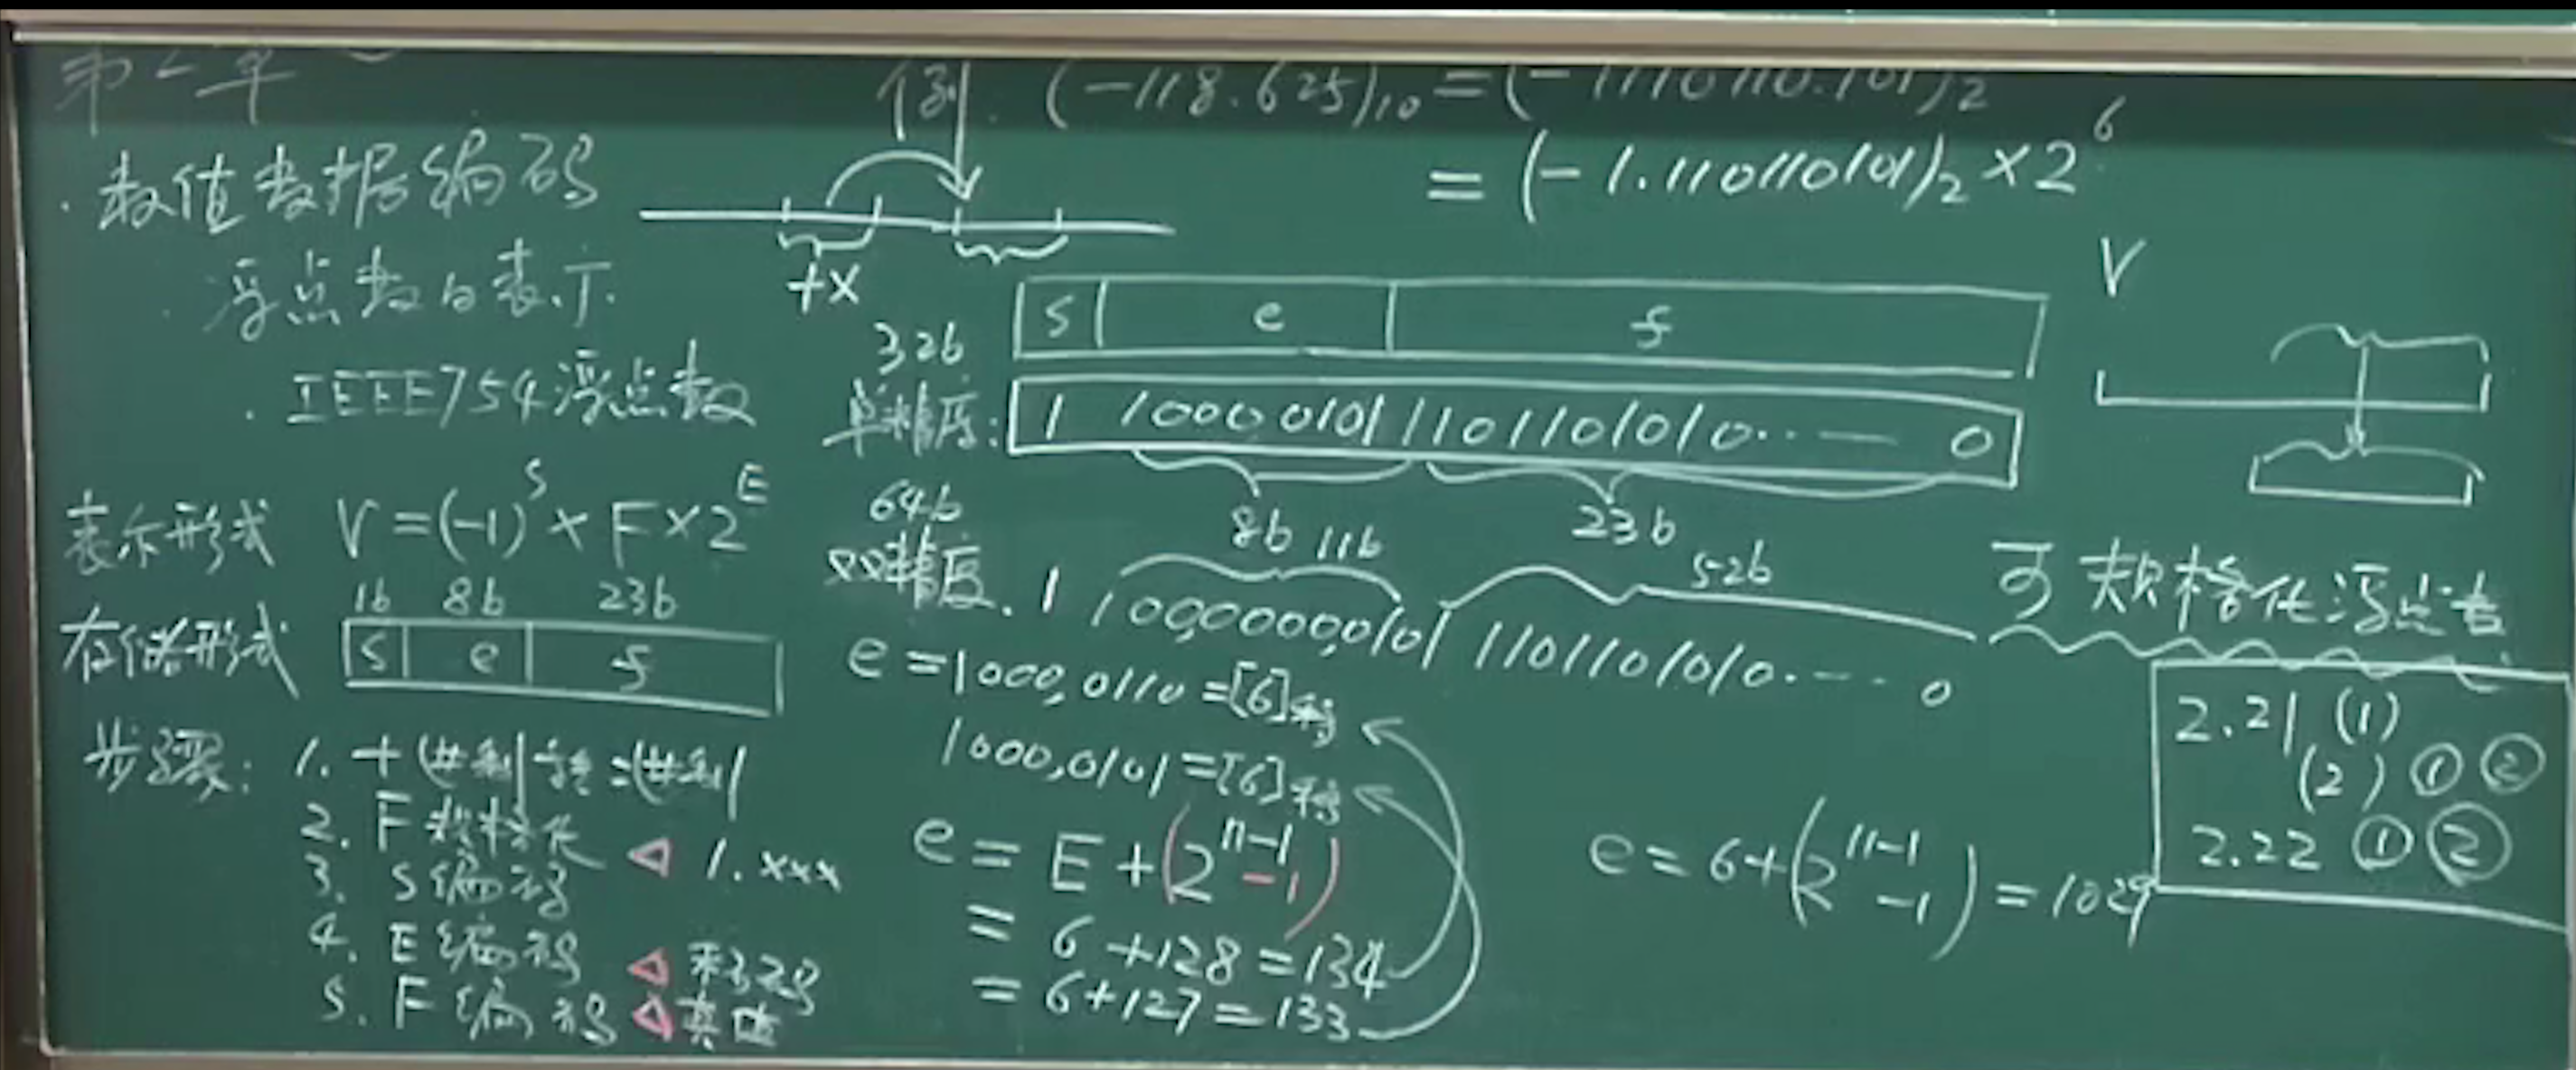 第二章
· 数值数据编码
· 浮点数的表示
· IEEE754浮点数
表示形式 V=(-1)^S × F×2^E
1b 8b 23b
存储形式 s e f
步骤: 1. 十进制转二进制
2. F规格化 ◁ 1.xxx
3. S编码
4. E编码 ◁ 移码
5. F编码 ◁ 真值
例. (-118.625)₁₀=(-1110110.101)₂
= (-1.110110101)₂×2^6
+x
s e f
32b
单精度: 1 10000101 1101101010··— 0
8b 23b
64b
双精度. 1 100,0000,0101 1101101010·--· 0
11b 52b
e=1000,0110=[6]移
1000,0101=[6]移
e= E+(2^(n-1) -1)
= 6+128=134
= 6+127=133
e=6+(2^(11-1) -1)=1029
V
可规格化浮点数
2.21 (1)
(2) ① ②
2.22 ① ②